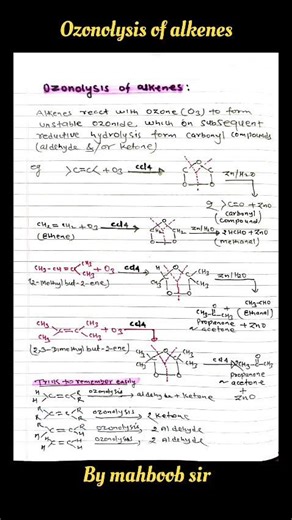 Ozonolysis of alkenes
Ozonolysis of alkenes:
Alkenes react with ozone (O3) to form
unstable ozonide which on subsequent
reductive hydrolysis form carbonyl compounds
(aldehyde &/or ketone)
eg >C=C< + O3 ccl4 Zn/H2O
2 >C=O + ZnO
(carbonyl
compound)
CH2=CH2 + O3 ccl4 Zn/H2O 2HCHO + ZnO
(Ethene) (methanal)
CH3-CH=C CH3 CH3 + O3 ccl4 H CH3 CH3 CH3 Zn/H2O
(2-Methylbut-2-ene) CH3-C-CH3 + CH3-CHO
(Ethanal)
propanone + ZnO
~ acetone
CH3 CH3 >C=C< CH3 CH3 + O3 ccl4
(2,3-Dimethylbut-2-ene) CH3 CH3 CH3 CH3
propanone
~ acetone
+
ZnO
Trick to remember easily
>C=C< ozonolysis Aldehyde + Ketone
R R >C=C< R R ozonolysis 2 Ketone
>C=C< ozonolysis, 2 Aldehyde
>C=C< ozonolysis, 2 Aldehyde
By mahboob sir